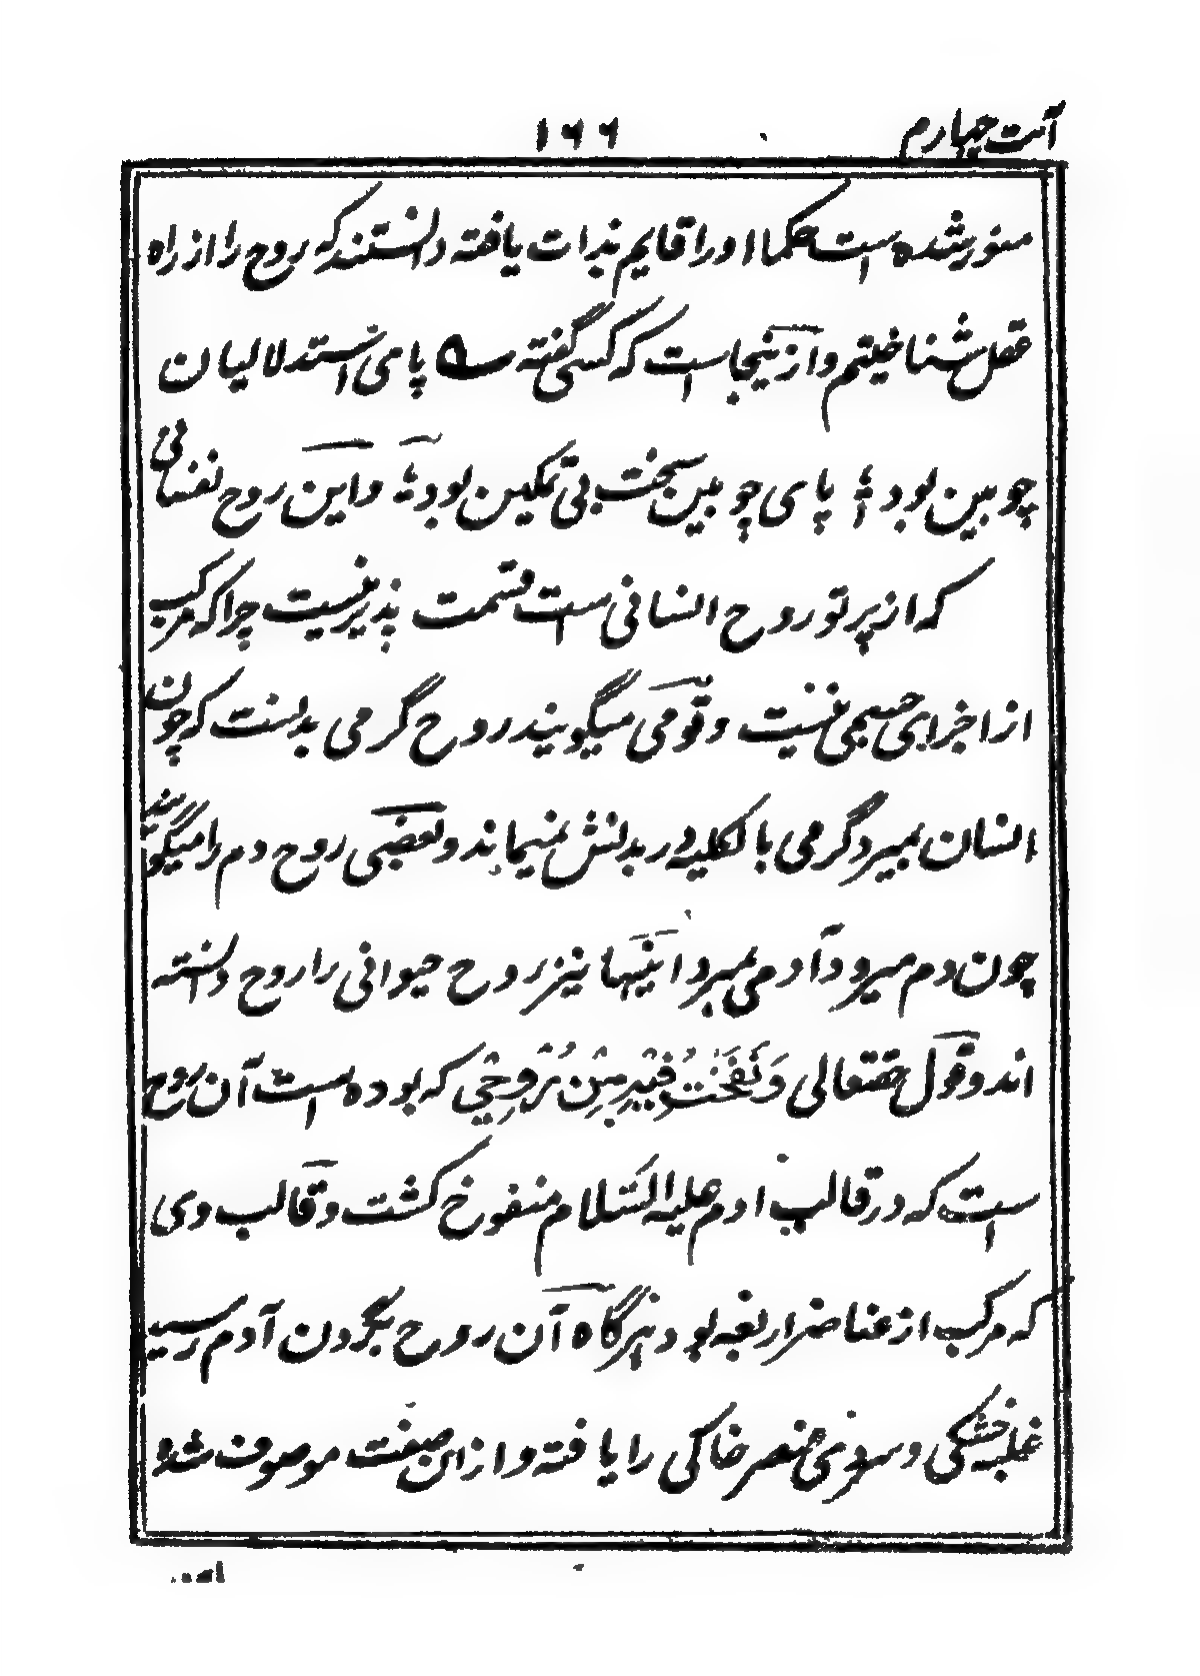 آیت چهارم ۱۶۶
منور شده است حکما او را قایم بذات یافته دانستند که روح را از راه
عقل شناختیم و ازینجاست که کسی گفته پای استدلالیان
چوبین بود پای چوبین سخت بی تمکین بود و این روح نفسانی
که از پرتو روح انسانی است قسمت پذیر نیست چرا که مرکب
از اجزای جسمی نیست و قومی میگویند روح گرمی بدنست که چون
انسان بمیرد گرمی بالکلیه در بدنش نمیماند و بعضی روح دم را میگویند
چون دم میرود آدمی بمیرد اینها نیز روح حیوانی را روح دانسته
اند و قول حقتعالی وَنَفَخْتُ فِیهِ مِنْ رُوحِی که بوده است آن روح
ست که در قالب ادم علیه السّلام منفوخ گشت و قالب وی
که مرکب از عناصر اربعه بود هرگاه آن روح بگردن آدم رسید
غلبه خشکی و سردی عنصر خاکی را یافته و از ان صفت موصوف شده